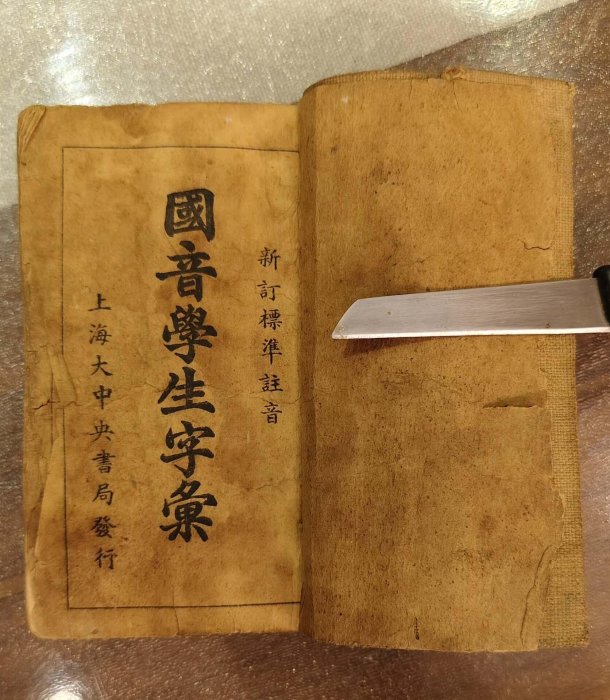 新訂標準註音
國音學生字彙
上海大中央書局發行